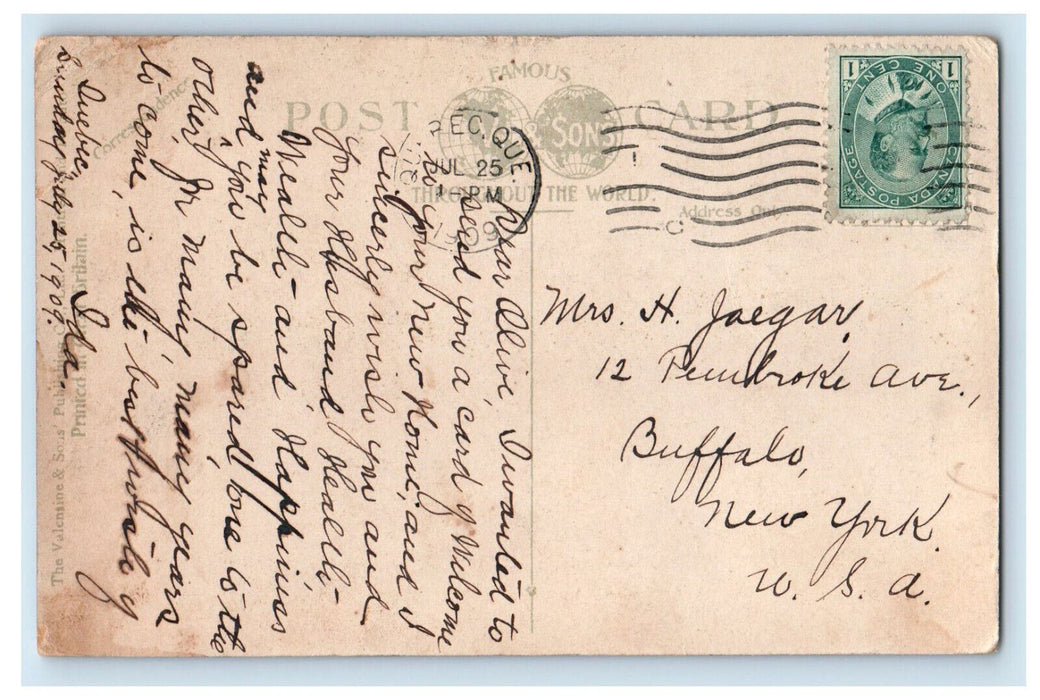 POST CARD.
FAMOUS
& SONS
THROUGHOUT THE WORLD.
Correspondence
Address Only
The Valentine & Sons' Publishing
Printed in Great Britain.
QUEBEC, QUE.
JUL 25
PM
1909
CANADA POSTAGE
ONE CENT
1 1
Quebec,
Sunday July 25, 909.
Dear Olive, I wanted to
send you a card of Welcome
to your New Home, and I
sincerely wish you and
your Husband Health-
Wealth- and Happiness
and may you be spared one to the
other, for many, many years
to come, is the best wish of
Ida.
Mrs. H. Jaegar,
12 Pembroke Ave.,
Buffalo,
New York.
U. S. A.